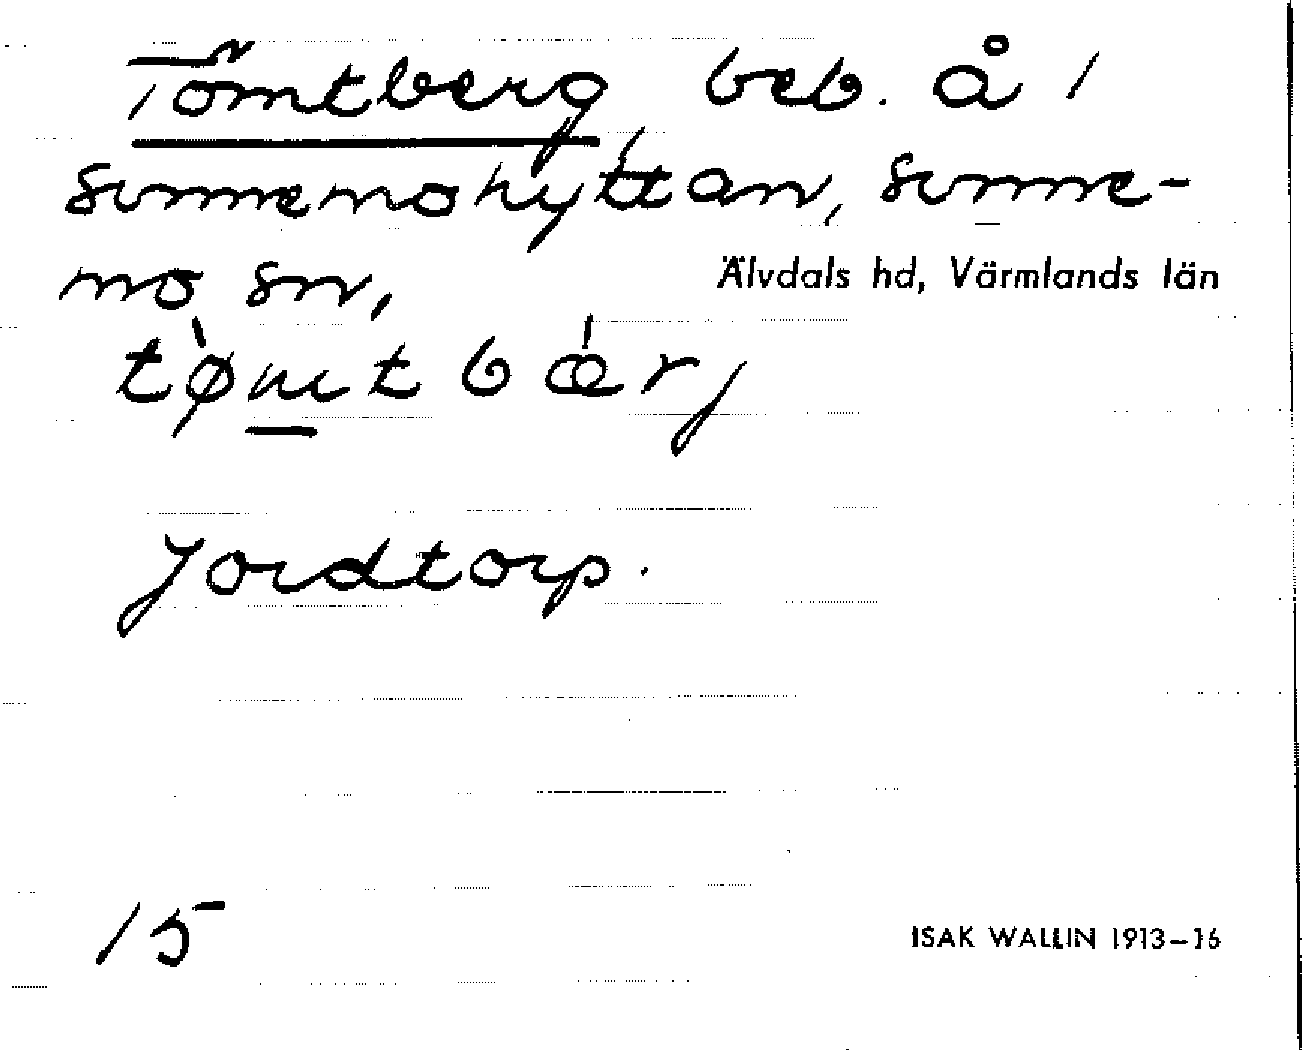 Tömtberg, beb. å 1
Sunnemohyttan, Sunne-
mo sn, Älvdals hd, Värmlands län
tø̀mtbǽrj
Jordtorp.
15 ISAK WALLIN 1913–16